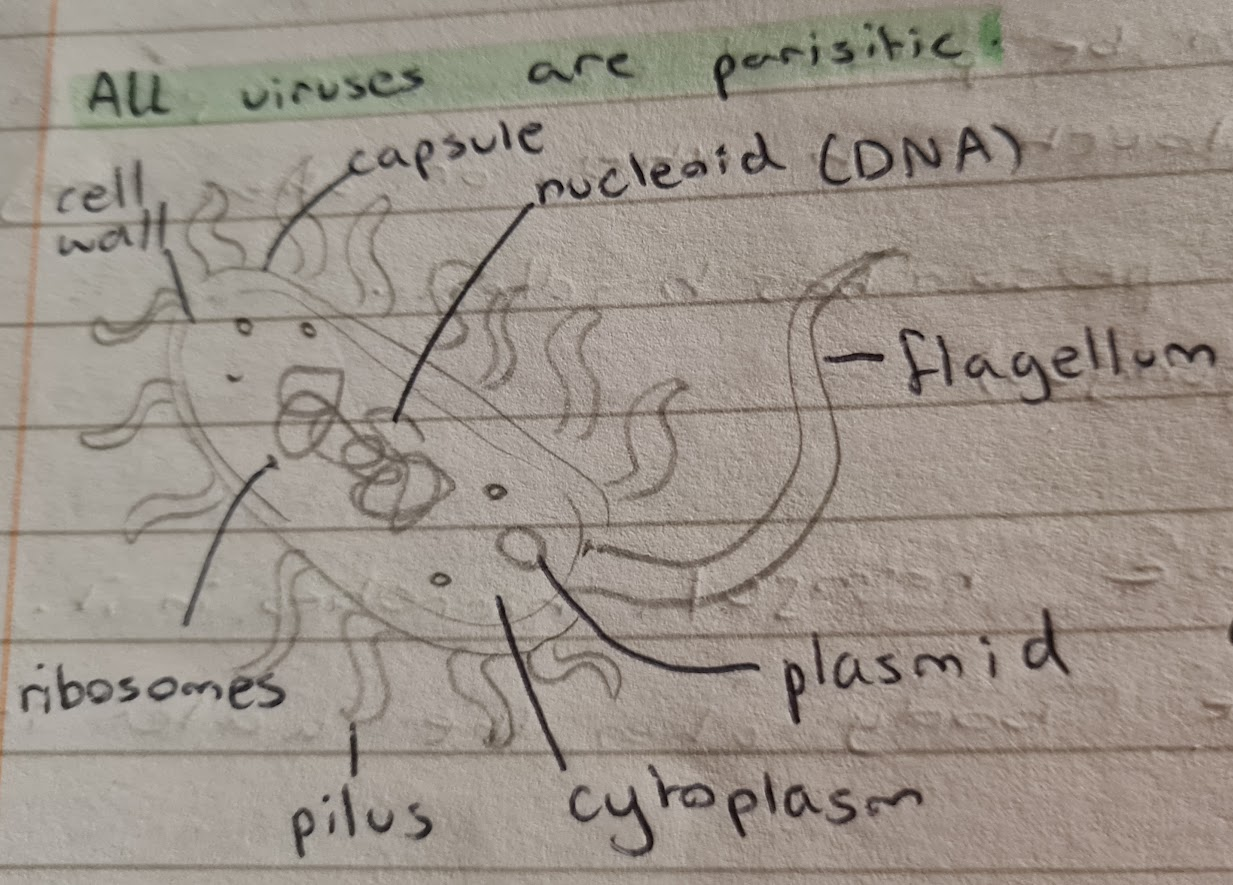 All viruses are parisitic.
capsule
nucleoid (DNA)
cell
wall
flagellum
ribosomes
plasmid
pilus
cytoplasm